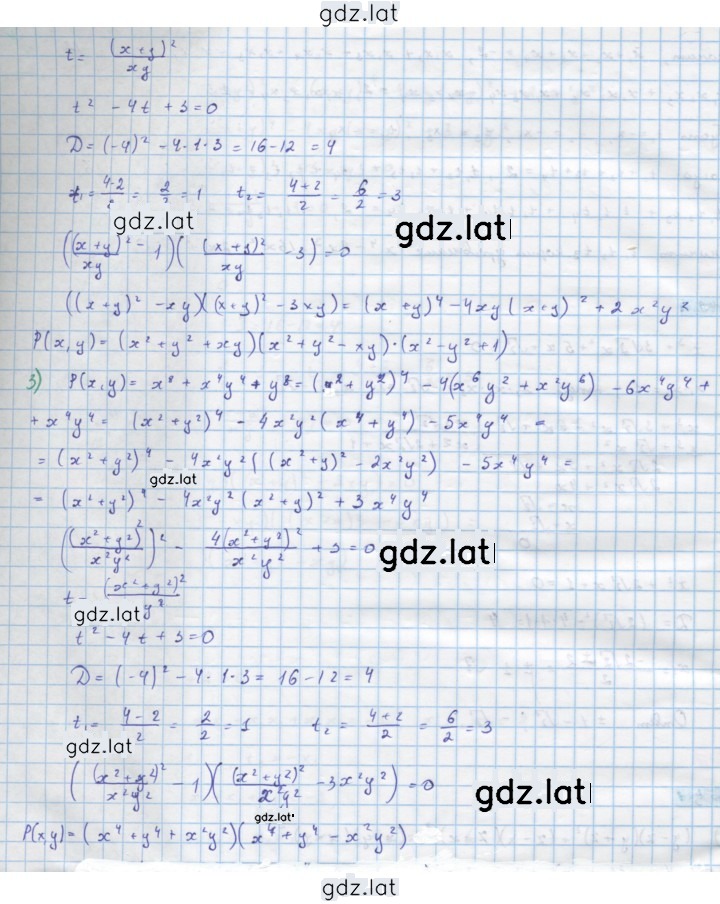 gdz.lat
t = (x + y)² / xy
t² - 4t + 3 = 0
D = (-4)² - 4·1·3 = 16-12 = 4
t₁ = 4-2/2 = 2/2 = 1 t₂ = 4+2/2 = 6/2 = 3
gdz.lat gdz.lat
((x+y)²/xy - 1)((x+y)²/xy - 3) = 0
((x+y)² - xy)((x+y)² - 3xy) = (x+y)⁴ - 4xy(x+y)² + 2x²y²
P(x,y) = (x² + y² + xy)(x² + y² - xy)·(x² - y² + 1)
3) P(x,y) = x⁸ + x⁴y⁴ + y⁸ = (x² + y²)⁴ - 4(x⁶y² + x²y⁶) - 6x⁴y⁴ +
+ x⁴y⁴ = (x² + y²)⁴ - 4x²y²(x⁴ + y⁴) - 5x⁴y⁴ =
= (x² + y²)⁴ - 4x²y²((x² + y)² - 2x²y²) - 5x⁴y⁴ =
gdz.lat
= (x² + y²)⁴ - 4x²y²(x² + y)² + 3x⁴y⁴
((x² + y²)²/x²y²)² - 4(x² + y²)²/x²y² + 3 = 0
gdz.lat
t = (x² + y²)²/y²
gdz.lat
t² - 4t + 3 = 0
D = (-4)² - 4·1·3 = 16-12 = 4
t₁ = 4-2/2 = 2/2 = 1 t₂ = 4+2/2 = 6/2 = 3
gdz.lat
((x² + y²)²/x²y² - 1)((x² + y²)²/x²y² - 3x²y²) = 0
gdz.lat
gdz.lat
P(xy) = (x⁴ + y⁴ + x²y²)(x⁴ + y⁴ - x²y²)
gdz.lat